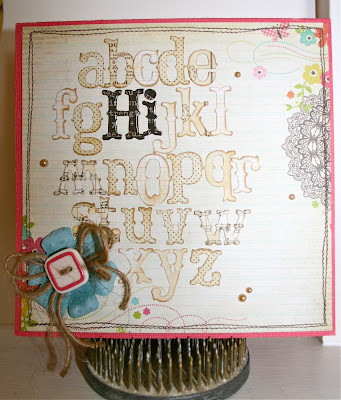 abcde
fgHijkl
mnopqr
stuvw
xyz